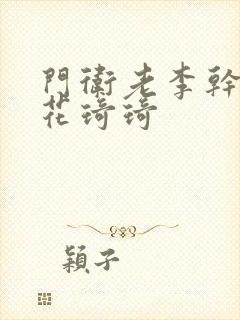 門衛老李幹
花琦琦
穎子